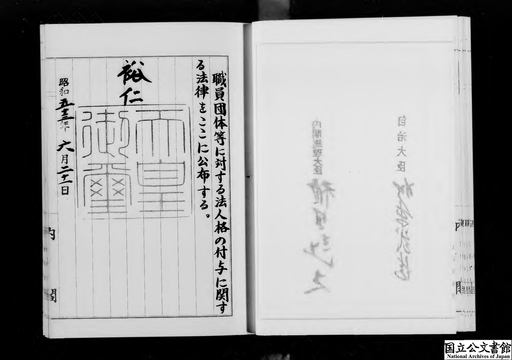 職員団体等に対する法人格の付与に関す
る法律をここに公布する。
裕仁
天皇
御璽
昭和五三年六月二一日
内閣
自治大臣
内閣総理大臣
国立公文書館
National Archives of Japan